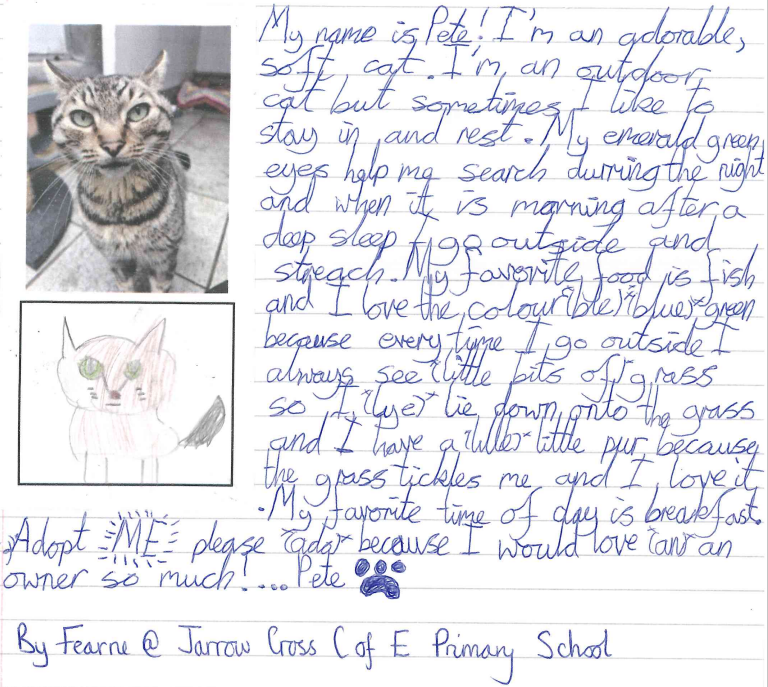 My name is Pete! I'm an adorable,
soft, cat. I'm an outdoor
cat but sometimes I like to
stay in and rest. My emerald green
eyes help me search durring the night
and when it is morning after a
deep sleep I go outside and
streach. My favorite food is fish
and I love the colour (ble) (blue) green
because every time I go outside I
always see little bits of grass
so I (lye) lie down onto the grass
and I have a (litle) little purr because
the grass tickles me and I love it
. My favorite time of day is breakfast.
Adopt ME please (ada) because I would love (an) an
owner so much!... Pete
By Fearne @ Jarrow Cross C of E Primary School